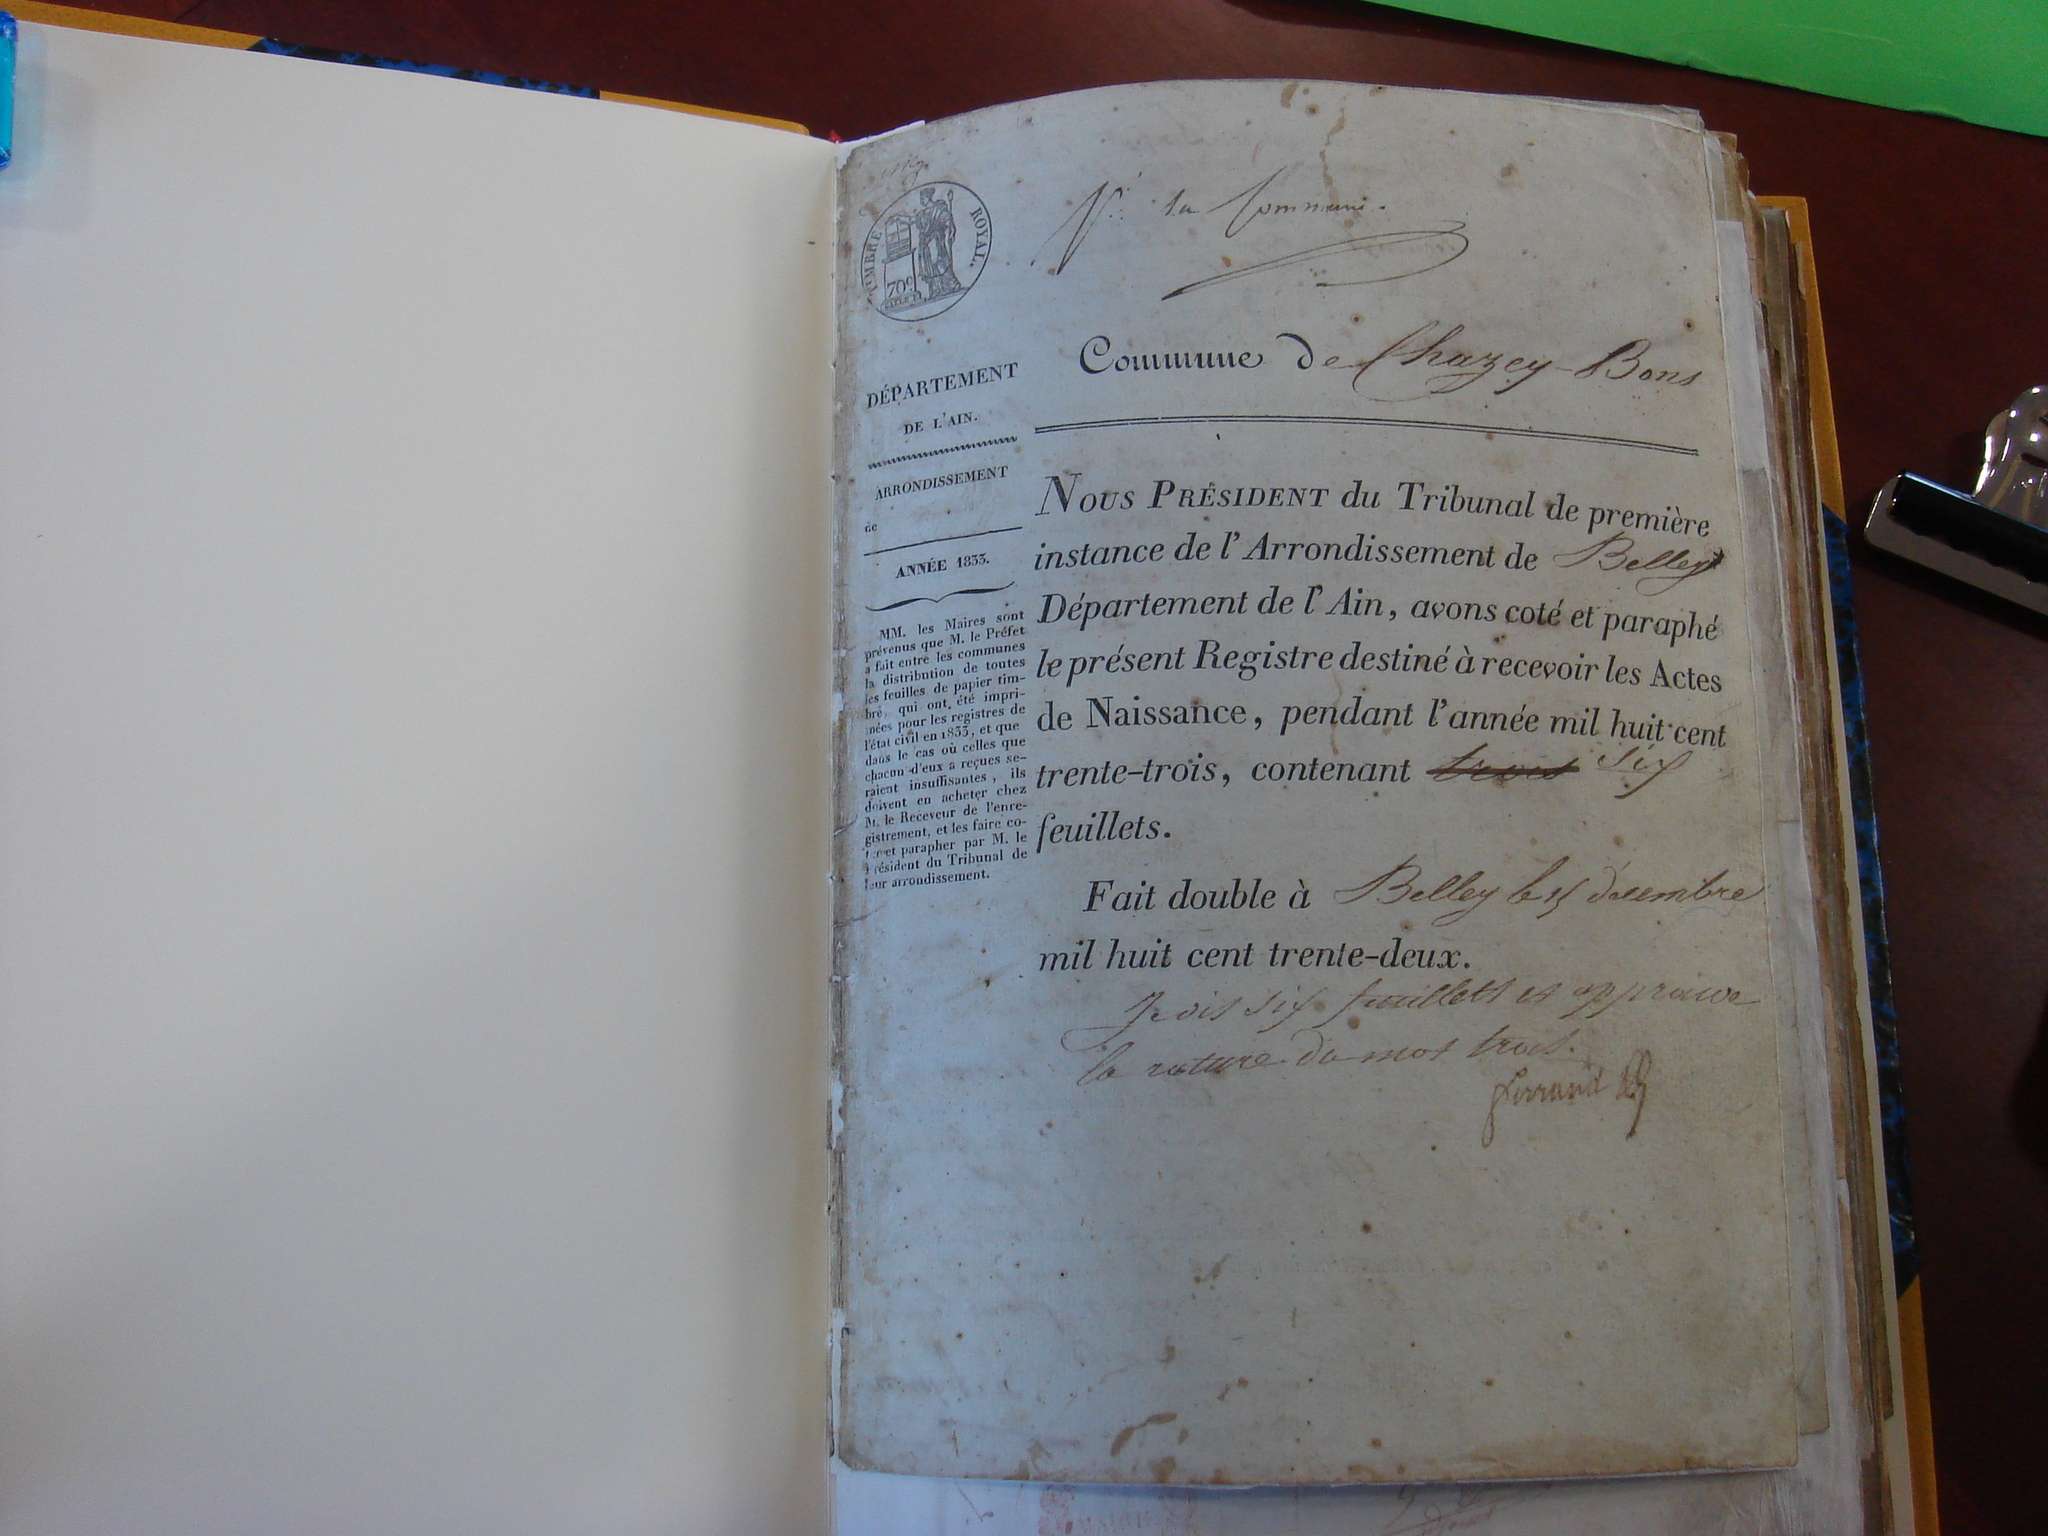 TIMBRE ROYAL.
70c
la Commune.
Commune de Chazey-Bons
DÉPARTEMENT
DE L'AIN.
ARRONDISSEMENT
de
ANNÉE 1833.
MM. les Maires sont
prévenus que M. le Préfet
a fait entre les communes
la distribution de toutes
les feuilles de papier tim-
bré, qui ont été impri-
mées pour les registres de
l'état civil en 1833, et que
dans le cas où celles que
chacun d'eux a reçues se-
raient insuffisantes, ils
doivent en acheter chez
M. le Receveur de l'enre-
gistrement, et les faire co-
ter et parapher par M. le
Président du Tribunal de
leur arrondissement.
NOUS PRÉSIDENT du Tribunal de première
instance de l'Arrondissement de Belley
Département de l'Ain, avons coté et paraphé
le présent Registre destiné à recevoir les Actes
de Naissance, pendant l'année mil huit cent
trente-trois, contenant trois six
feuillets.
Fait double à Belley le 15 décembre
mil huit cent trente-deux.
Je dis six feuillets et approuve
la rature du mot trois.